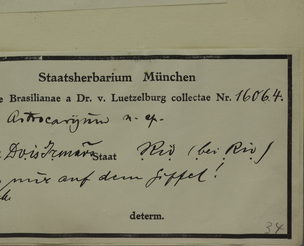 Staatsherbarium München
e Brasilianae a Dr. v. Luetzelburg collectae Nr. 16064.
Astrocaryum n. sp.
Dois Irmãos Staat Rio (bei Rio)
nur auf dem Gipfel!
determ.
34